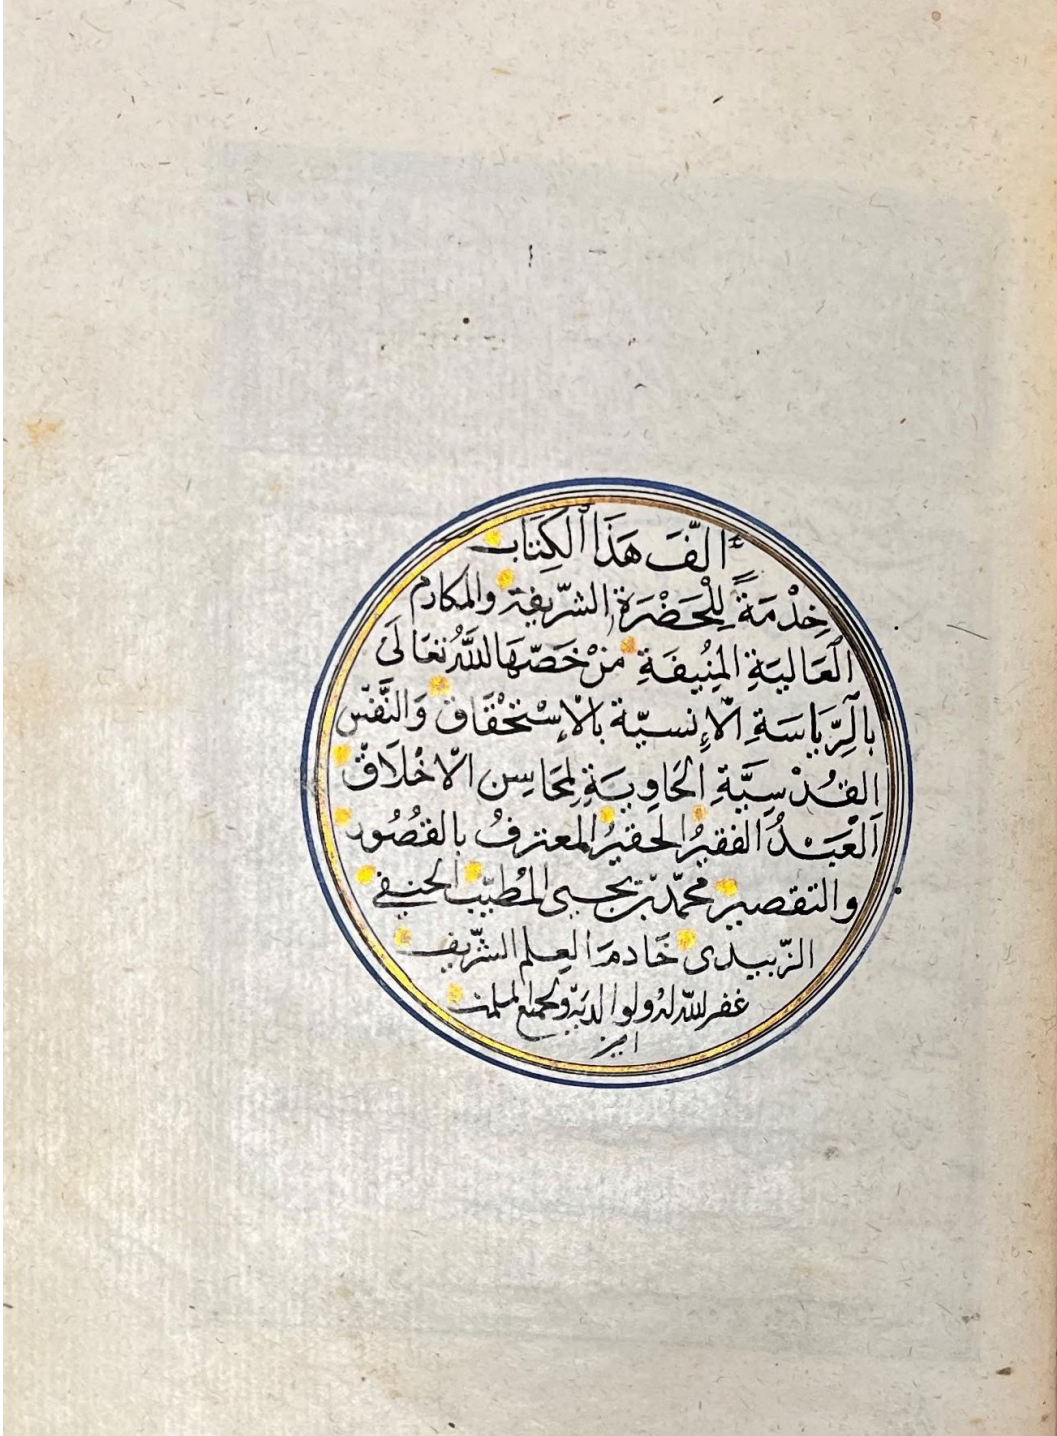 اَلَّفَ هَذَا الْكِتَاب
خِدْمَةً لِلْحَضْرَةِ الشّريفة والمكارم
الْعَاليَةِ المُنِيفَةِ مَنْ خَصّهَا اللَّهُ تعَالَى
بِالرِّيَاسَةِ الْإِنسيّة بالْإسْتحْقَاق وَالنَّفْس
القُدْسِيَّةِ الحَاوِيَةِ لِمَحَاسِن الْاخْلَاقْ
اَلْعَبْدُ الفقيرُ الحقيرُ المعترفُ بالقُصُور
والتقصير محمّد بن يحيى المُطيّب الحنفي
الزّبيدى خَادمَ العِلم الشّريف
غفر الله له ولوالديه ولجميع المسلمين
امين